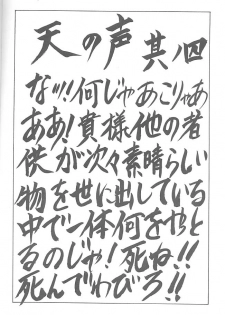 天の声 其ノ四
なッ!何じゃあこりゃあ
ああ!貴様、他の者
供が次々素晴らしい
物を世に出している
中で一体何をやっと
るのじゃ!死ね!!
死んでわびろ!!